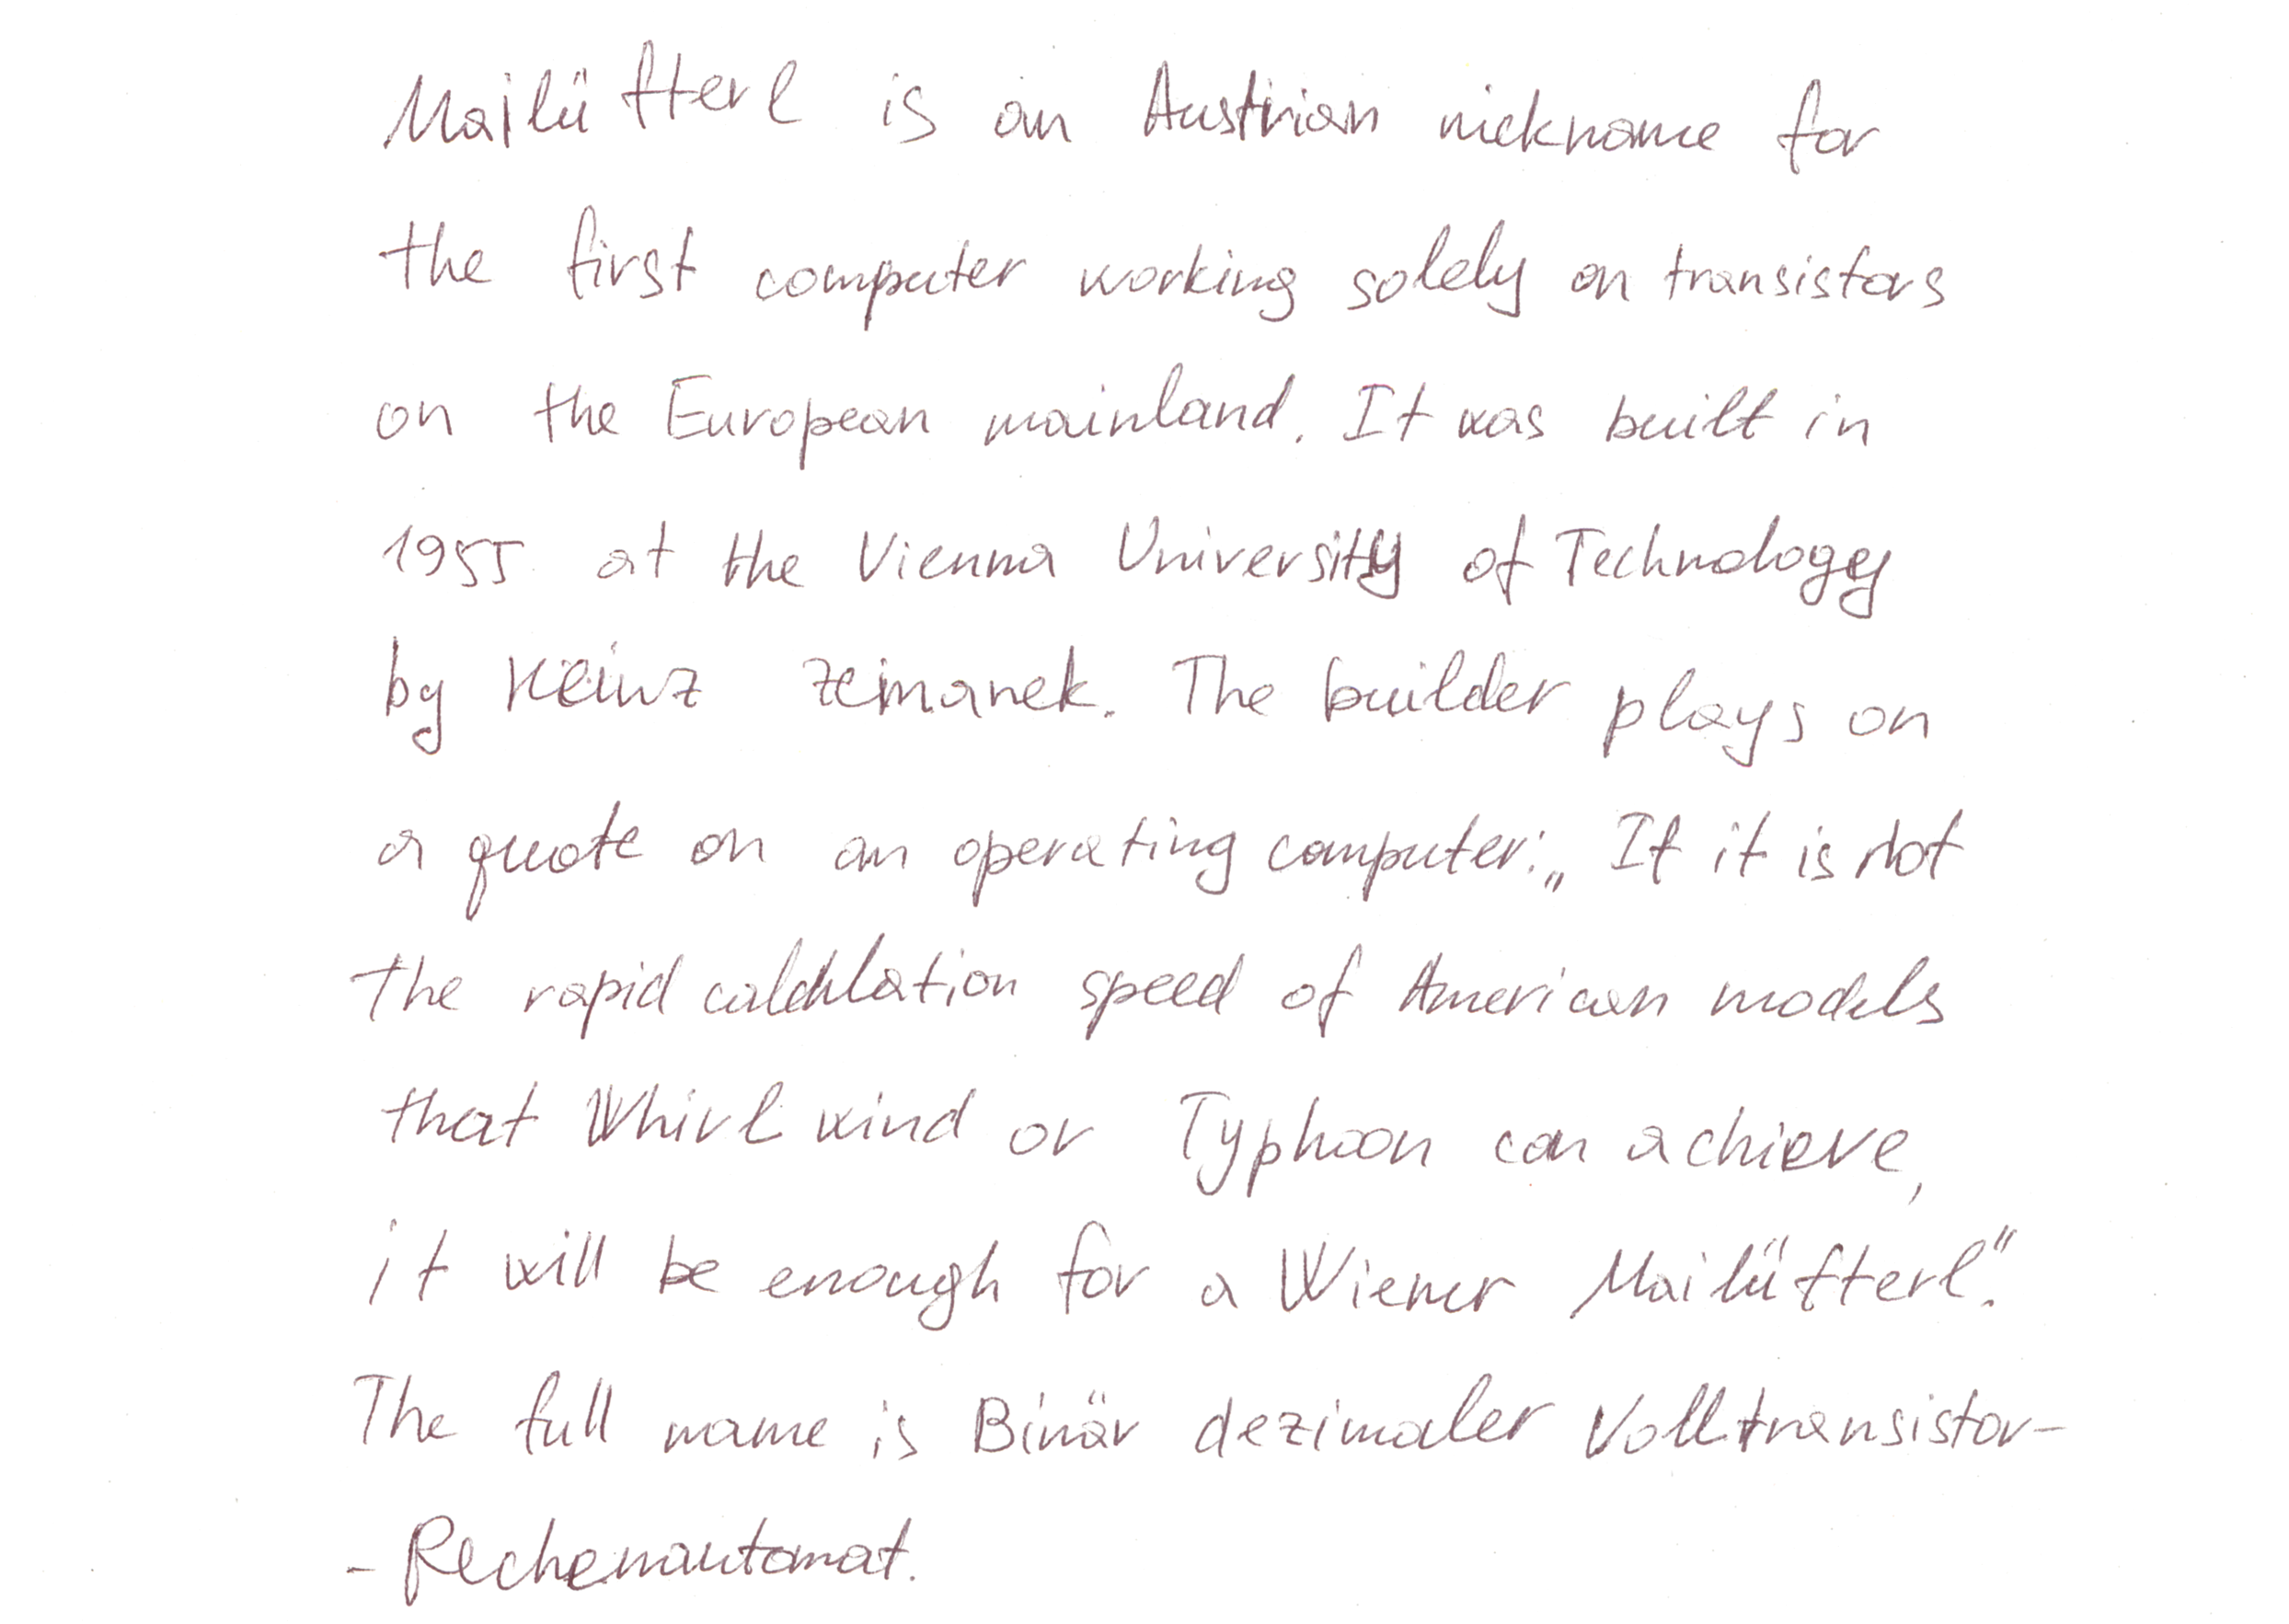 Mailüfterl is an Austrian nickname for
the first computer working solely on transistors
on the European mainland. It was built in
1955 at the Vienna University of Technology
by Heinz Zemanek. The builder plays on
a quote on an operating computer: „If it is not
the rapid calculation speed of American models
that Whirlwind or Typhoon can achieve,
it will be enough for a Wiener Mailüfterl".
The full name is Binär dezimaler Volltransistor-
-Rechenautomat.